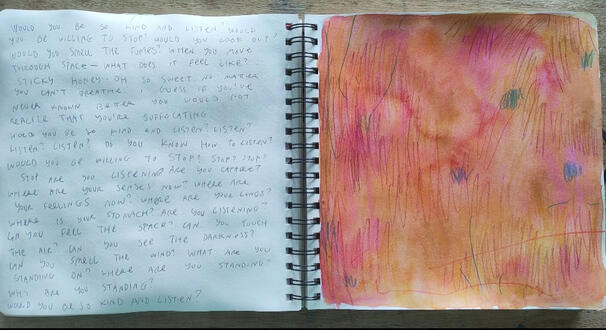 WOULD YOU BE SO KIND AND LISTEN? WOULD
YOU BE WILLING TO STOP? WOULD YOU LOOK OUT?
WOULD YOU SMELL THE FUMES? WHEN YOU MOVE
THROUGH SPACE – WHAT DOES IT FEEL LIKE?
STICKY HONEY. OH SO SWEET. NO MATTER
YOU CAN'T BREATHE. I GUESS IF YOU'VE
NEVER KNOWN BETTER YOU WOULD NOT
REALISE THAT YOU'RE SUFFOCATING
WOULD YOU BE SO KIND AND LISTEN? LISTEN?
LISTEN? LISTEN? DO YOU KNOW HOW TO LISTEN?
WOULD YOU BE WILLING TO STOP? STOP? STOP?
STOP ARE YOU LISTENING ARE YOU
WHERE ARE YOUR SENSES NOW? WHERE ARE
YOUR FEELINGS NOW? WHERE ARE YOUR LUNGS?
WHERE IS YOUR STOMACH? ARE YOU LISTENING?
CAN YOU FEEL THE SPACE? CAN YOU TOUCH
THE AIR? CAN YOU SEE THE DARKNESS?
CAN YOU SMELL THE WIND? WHAT ARE YOU
STANDING ON? WHERE ARE YOU STANDING?
WHY ARE YOU STANDING?
WOULD YOU BE SO KIND AND LISTEN?